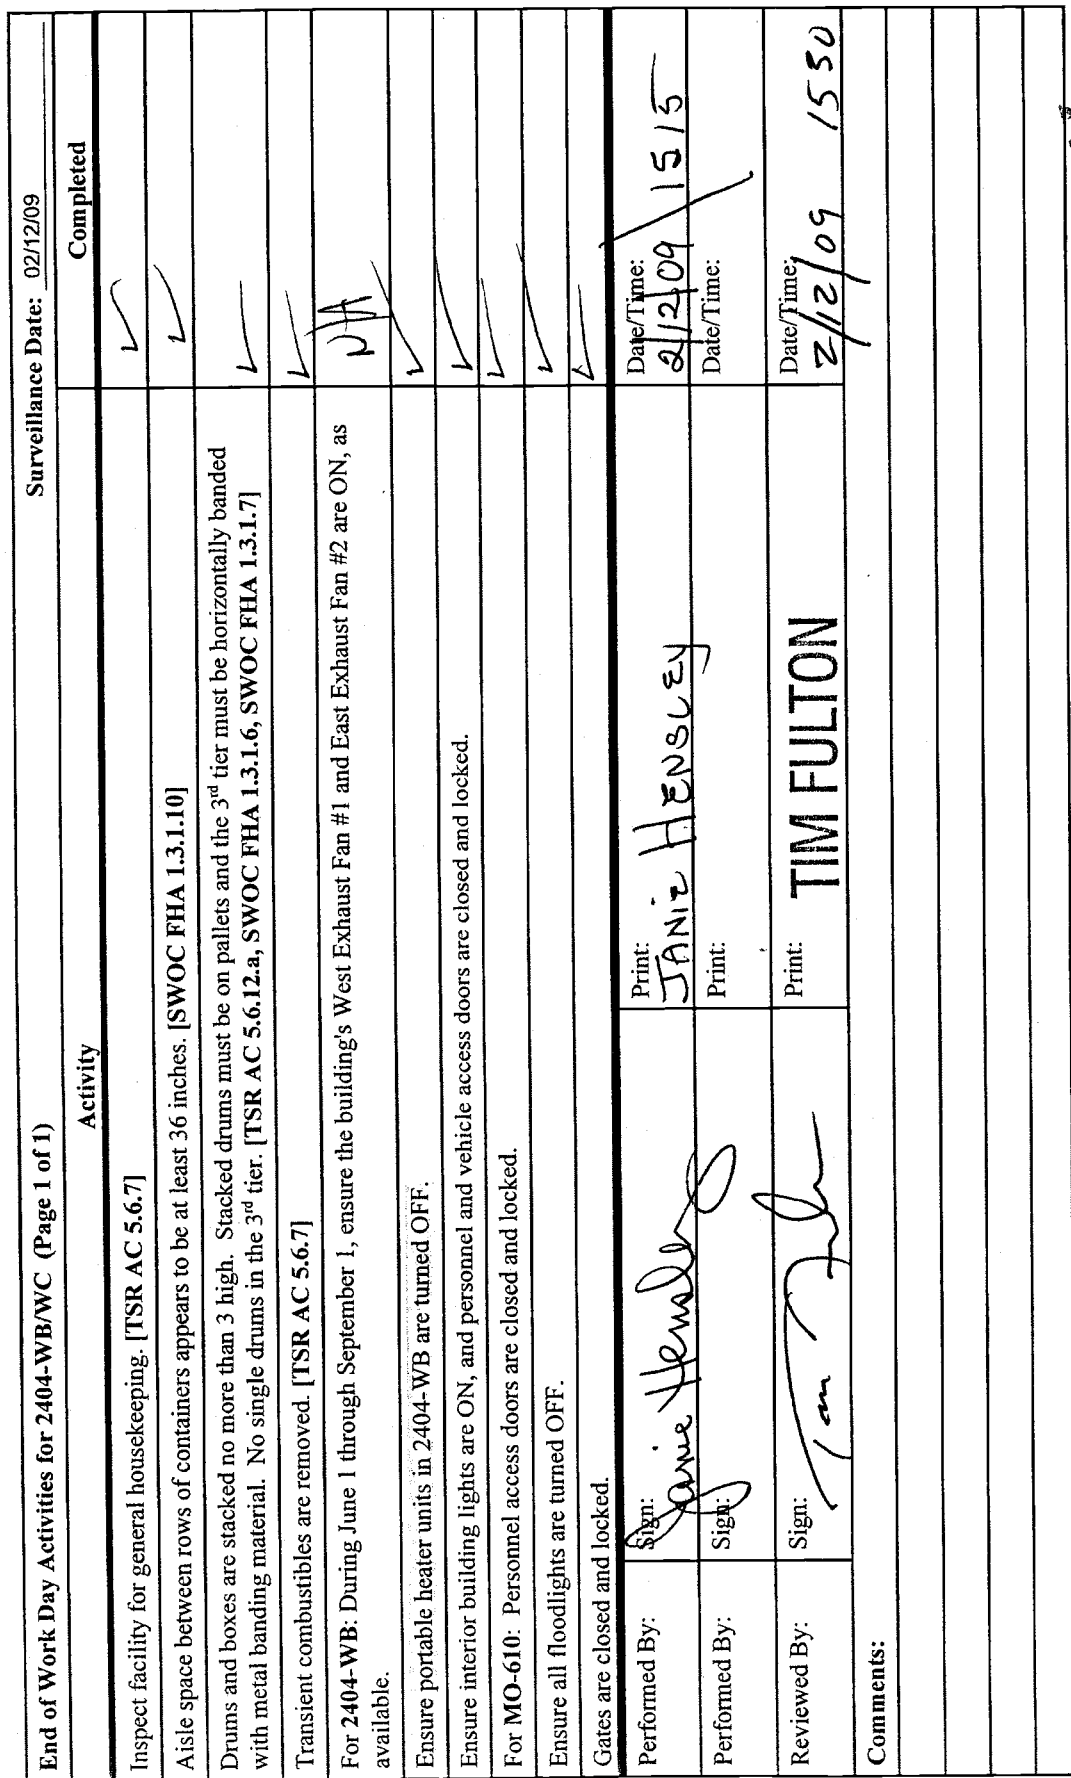 End of Work Day Activities for 2404-WB/WC (Page 1 of 1) Surveillance Date: 02/12/09
Activity Completed
Inspect facility for general housekeeping. [TSR AC 5.6.7] ✓
Aisle space between rows of containers appears to be at least 36 inches. [SWOC FHA 1.3.1.10] ✓
Drums and boxes are stacked no more than 3 high. Stacked drums must be on pallets and the 3rd tier must be horizontally banded
with metal banding material. No single drums in the 3rd tier. [TSR AC 5.6.12.a, SWOC FHA 1.3.1.6, SWOC FHA 1.3.1.7] ✓
Transient combustibles are removed. [TSR AC 5.6.7] ✓
For 2404-WB: During June 1 through September 1, ensure the building's West Exhaust Fan #1 and East Exhaust Fan #2 are ON, as N/A
available.
Ensure portable heater units in 2404-WB are turned OFF. ✓
Ensure interior building lights are ON, and personnel and vehicle access doors are closed and locked. ✓
For MO-610: Personnel access doors are closed and locked. ✓
Ensure all floodlights are turned OFF. ✓
Gates are closed and locked. ✓
Performed By: Sign: Janie Hensley Print: JANIE HENSLEY Date/Time: 2/12/09 1515
Performed By: Sign: Print: Date/Time:
Reviewed By: Sign: Print: TIM FULTON Date/Time: 2/12/09 1530
Comments: